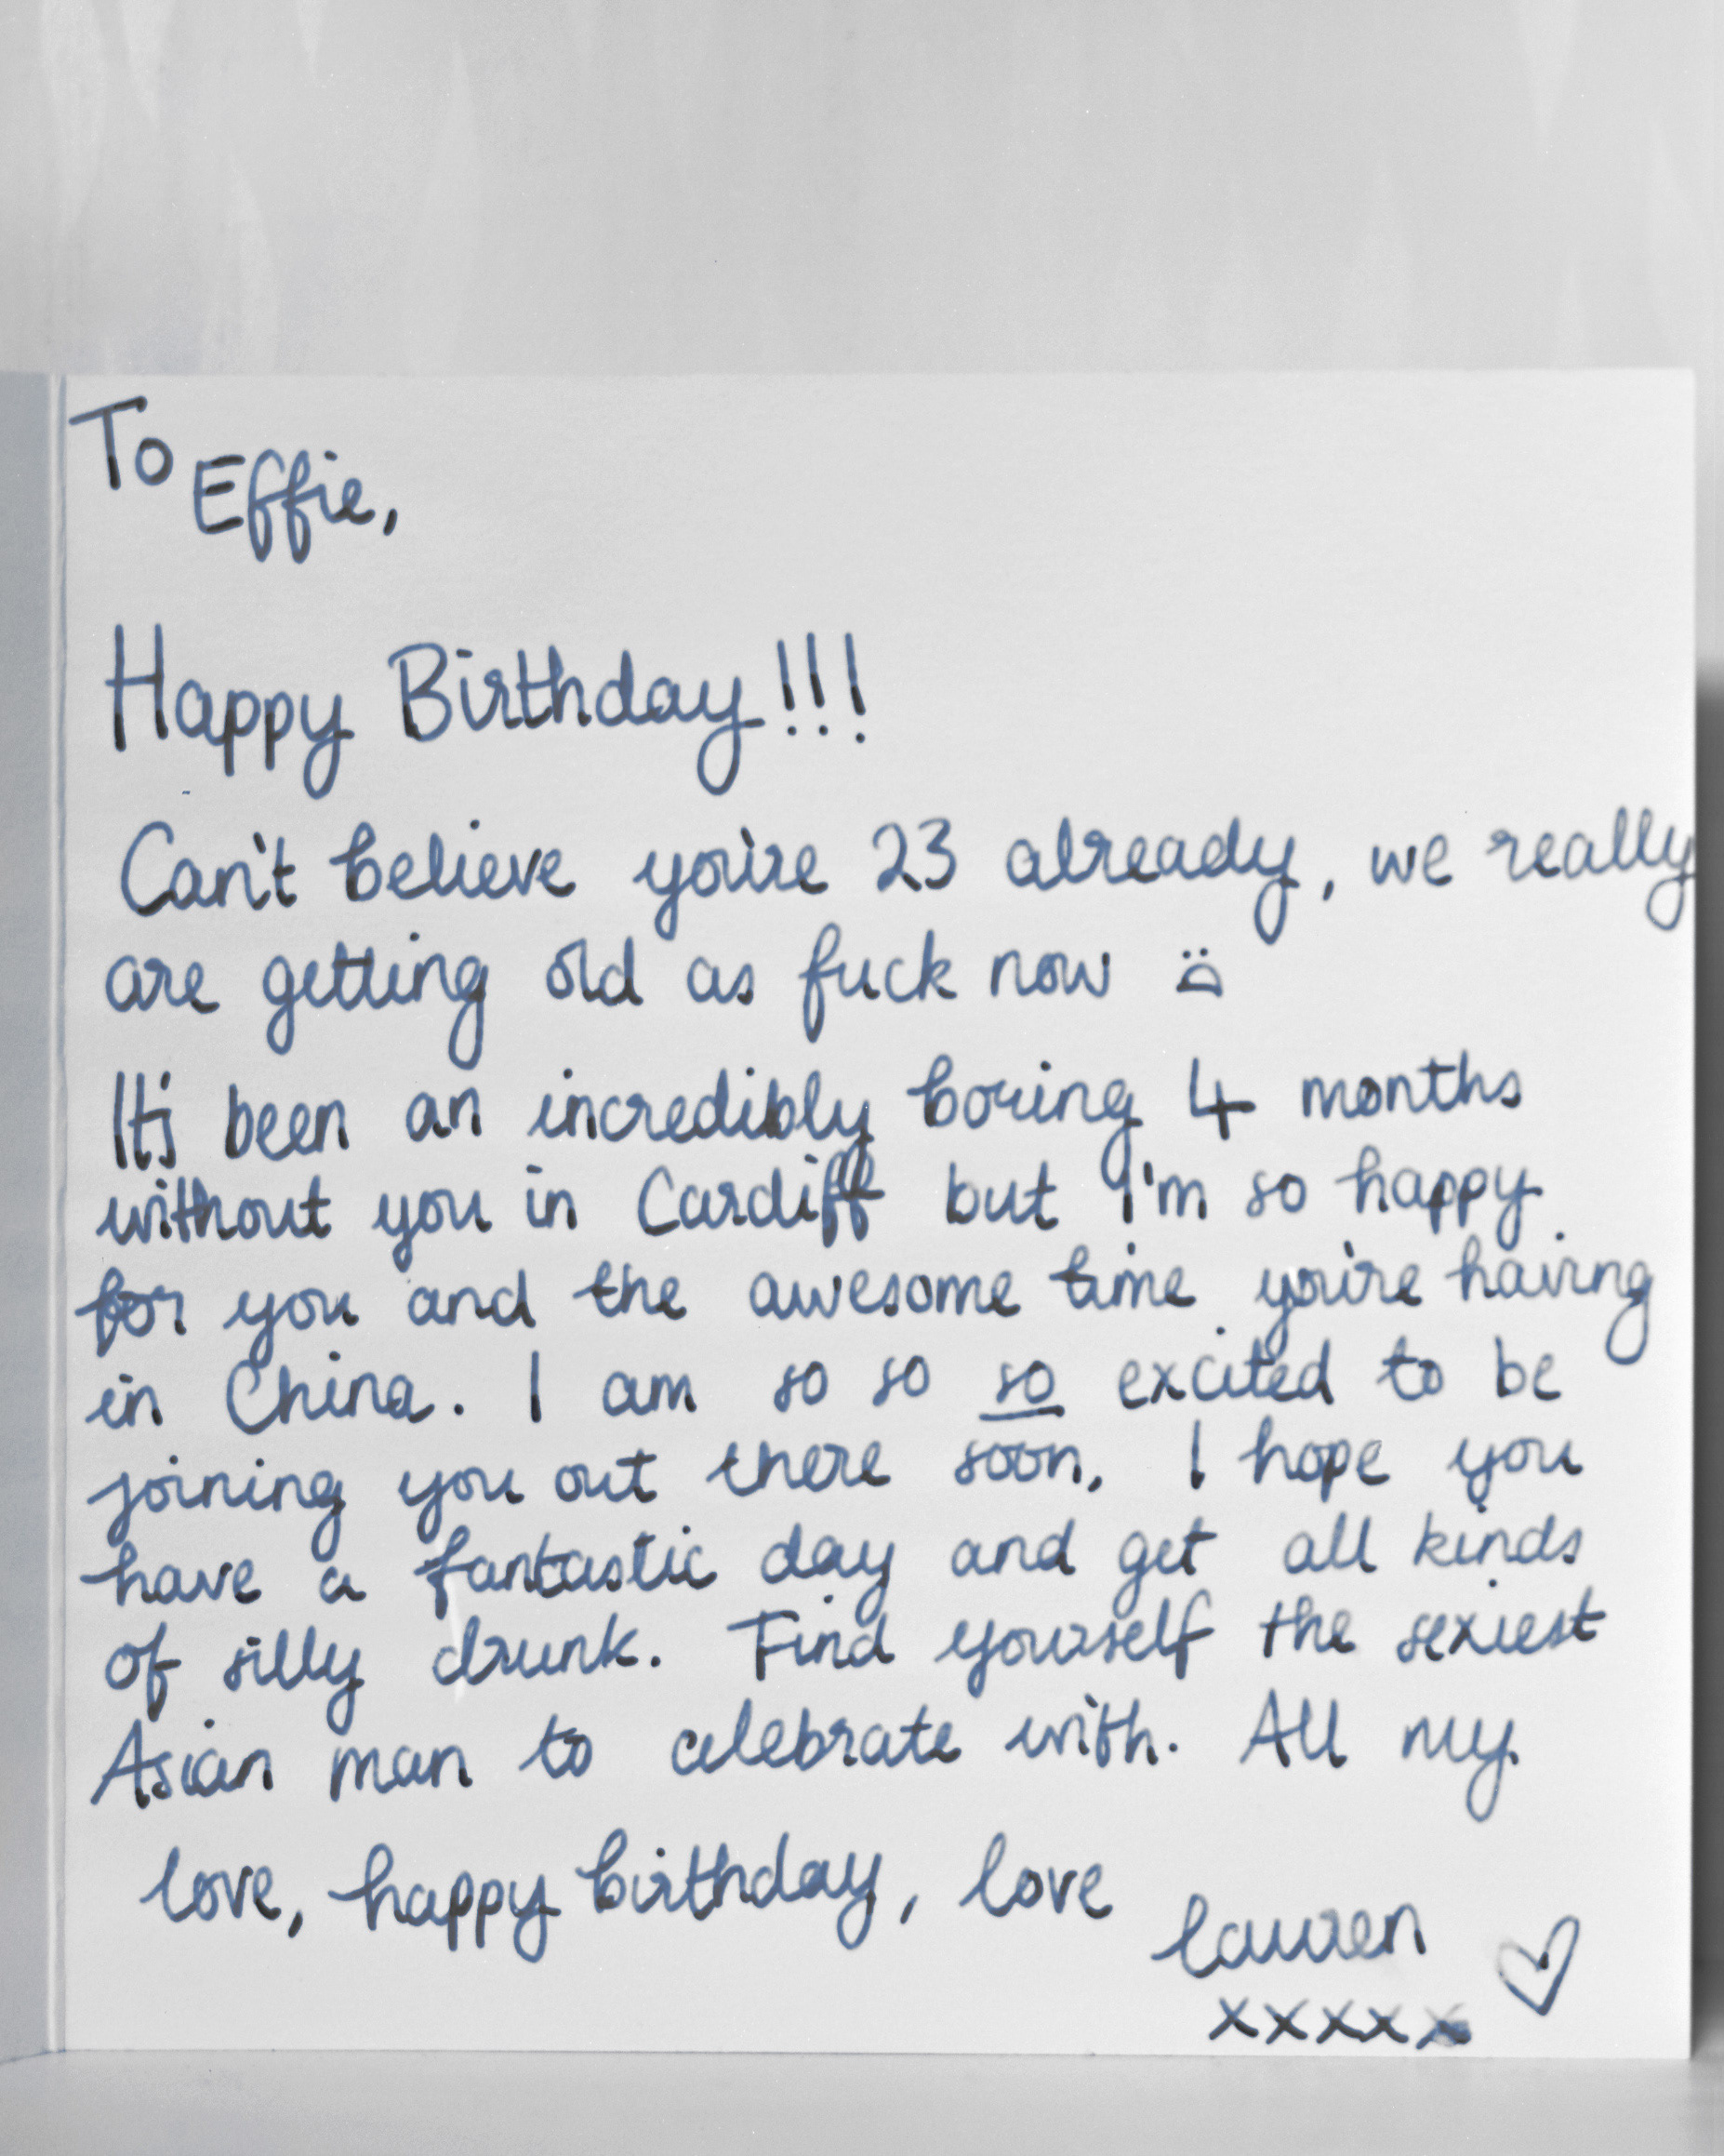 To Effie,
Happy Birthday!!!
Can't believe you're 23 already, we really
are getting old as fuck now :(
It's been an incredibly boring 4 months
without you in Cardiff but I'm so happy
for you and the awesome time you're having
in China. I am so so so excited to be
joining you out there soon. I hope you
have a fantastic day and get all kinds
of silly drunk. Find yourself the sexiest
Asian man to celebrate with. All my
love, happy birthday, love
lauren
xxxxx